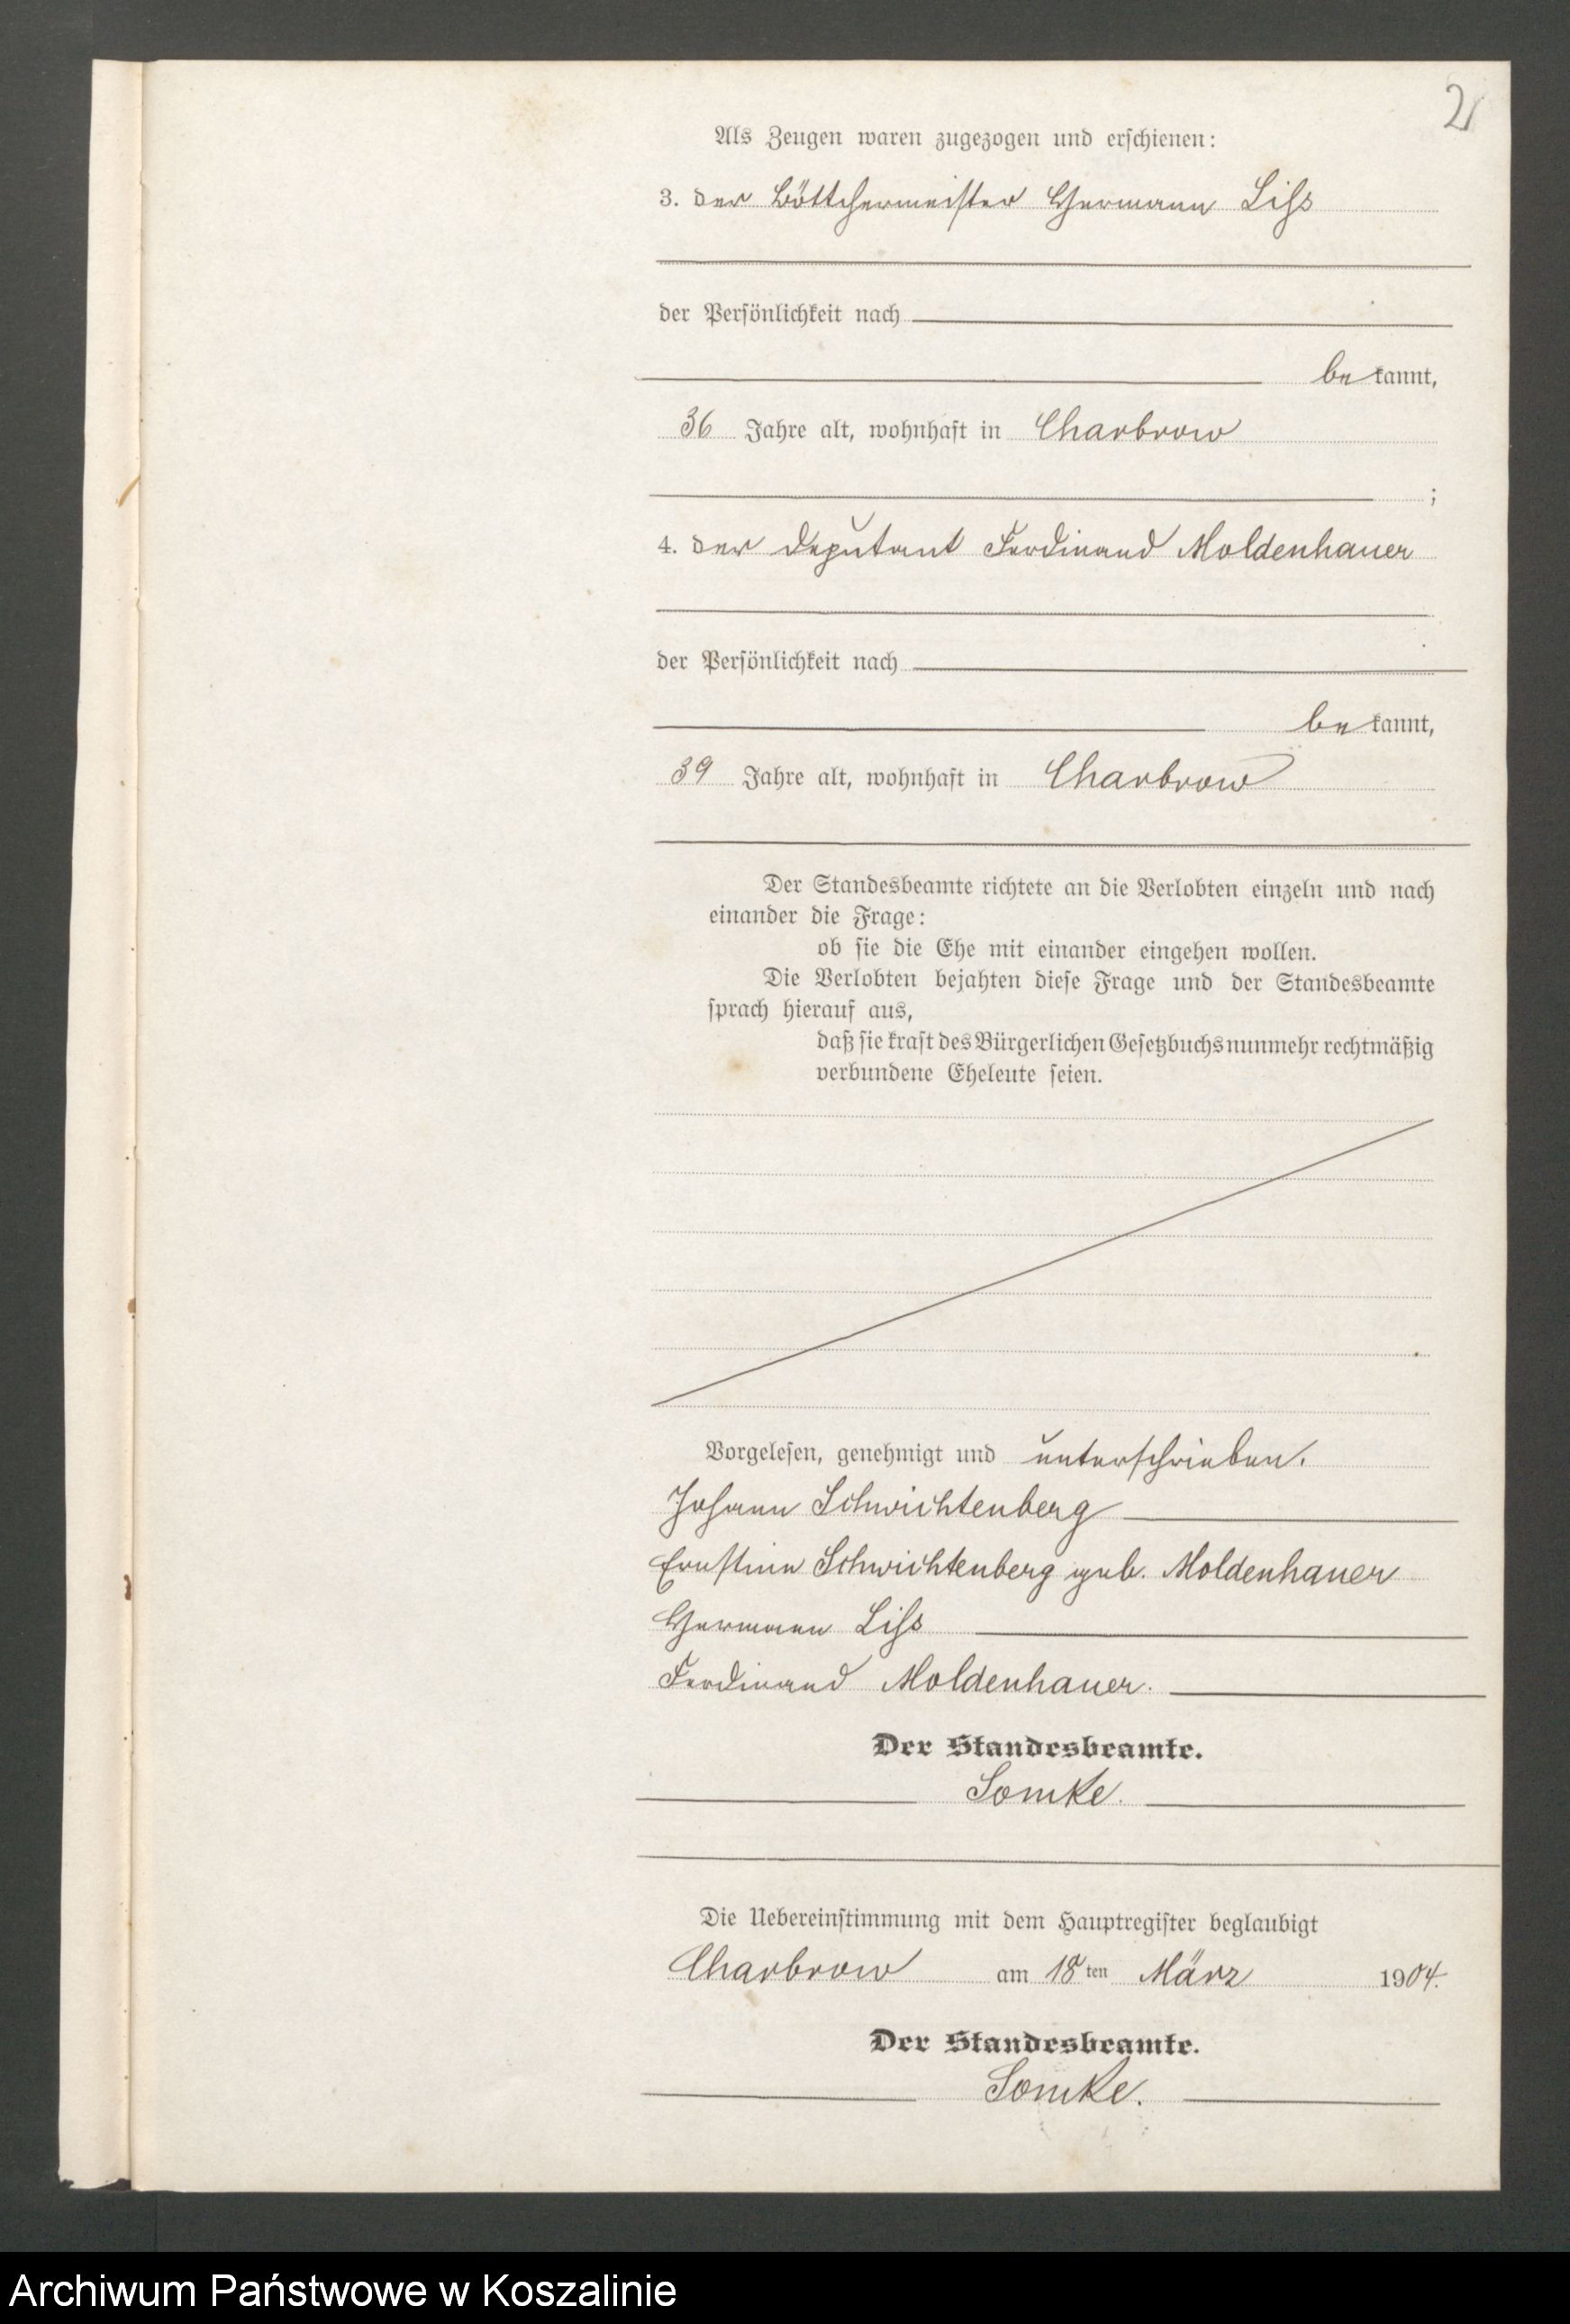 2
Als Zeugen waren zugezogen und erschienen:
3. der Böttchermeister Hermann Liss
der Persönlichkeit nach
be kannt,
36 Jahre alt, wohnhaft in Charbrow
;
4. der Deputant Ferdinand Moldenhauer
der Persönlichkeit nach
be kannt,
39 Jahre alt, wohnhaft in Charbrow
Der Standesbeamte richtete an die Verlobten einzeln und nach
einander die Frage:
ob sie die Ehe mit einander eingehen wollen.
Die Verlobten bejahten diese Frage und der Standesbeamte
sprach hierauf aus,
daß sie kraft des Bürgerlichen Gesetzbuchs nunmehr rechtmäßig
verbundene Eheleute seien.
Vorgelesen, genehmigt und unterschrieben.
Johann Schwichtenberg
Ernstine Schwichtenberg geb. Moldenhauer
Hermann Liss
Ferdinand Moldenhauer.
Der Standesbeamte.
Somke.
Die Uebereinstimmung mit dem Hauptregister beglaubigt
Charbrow am 18ten März 1904.
Der Standesbeamte.
Somke.
Archiwum Państwowe w Koszalinie